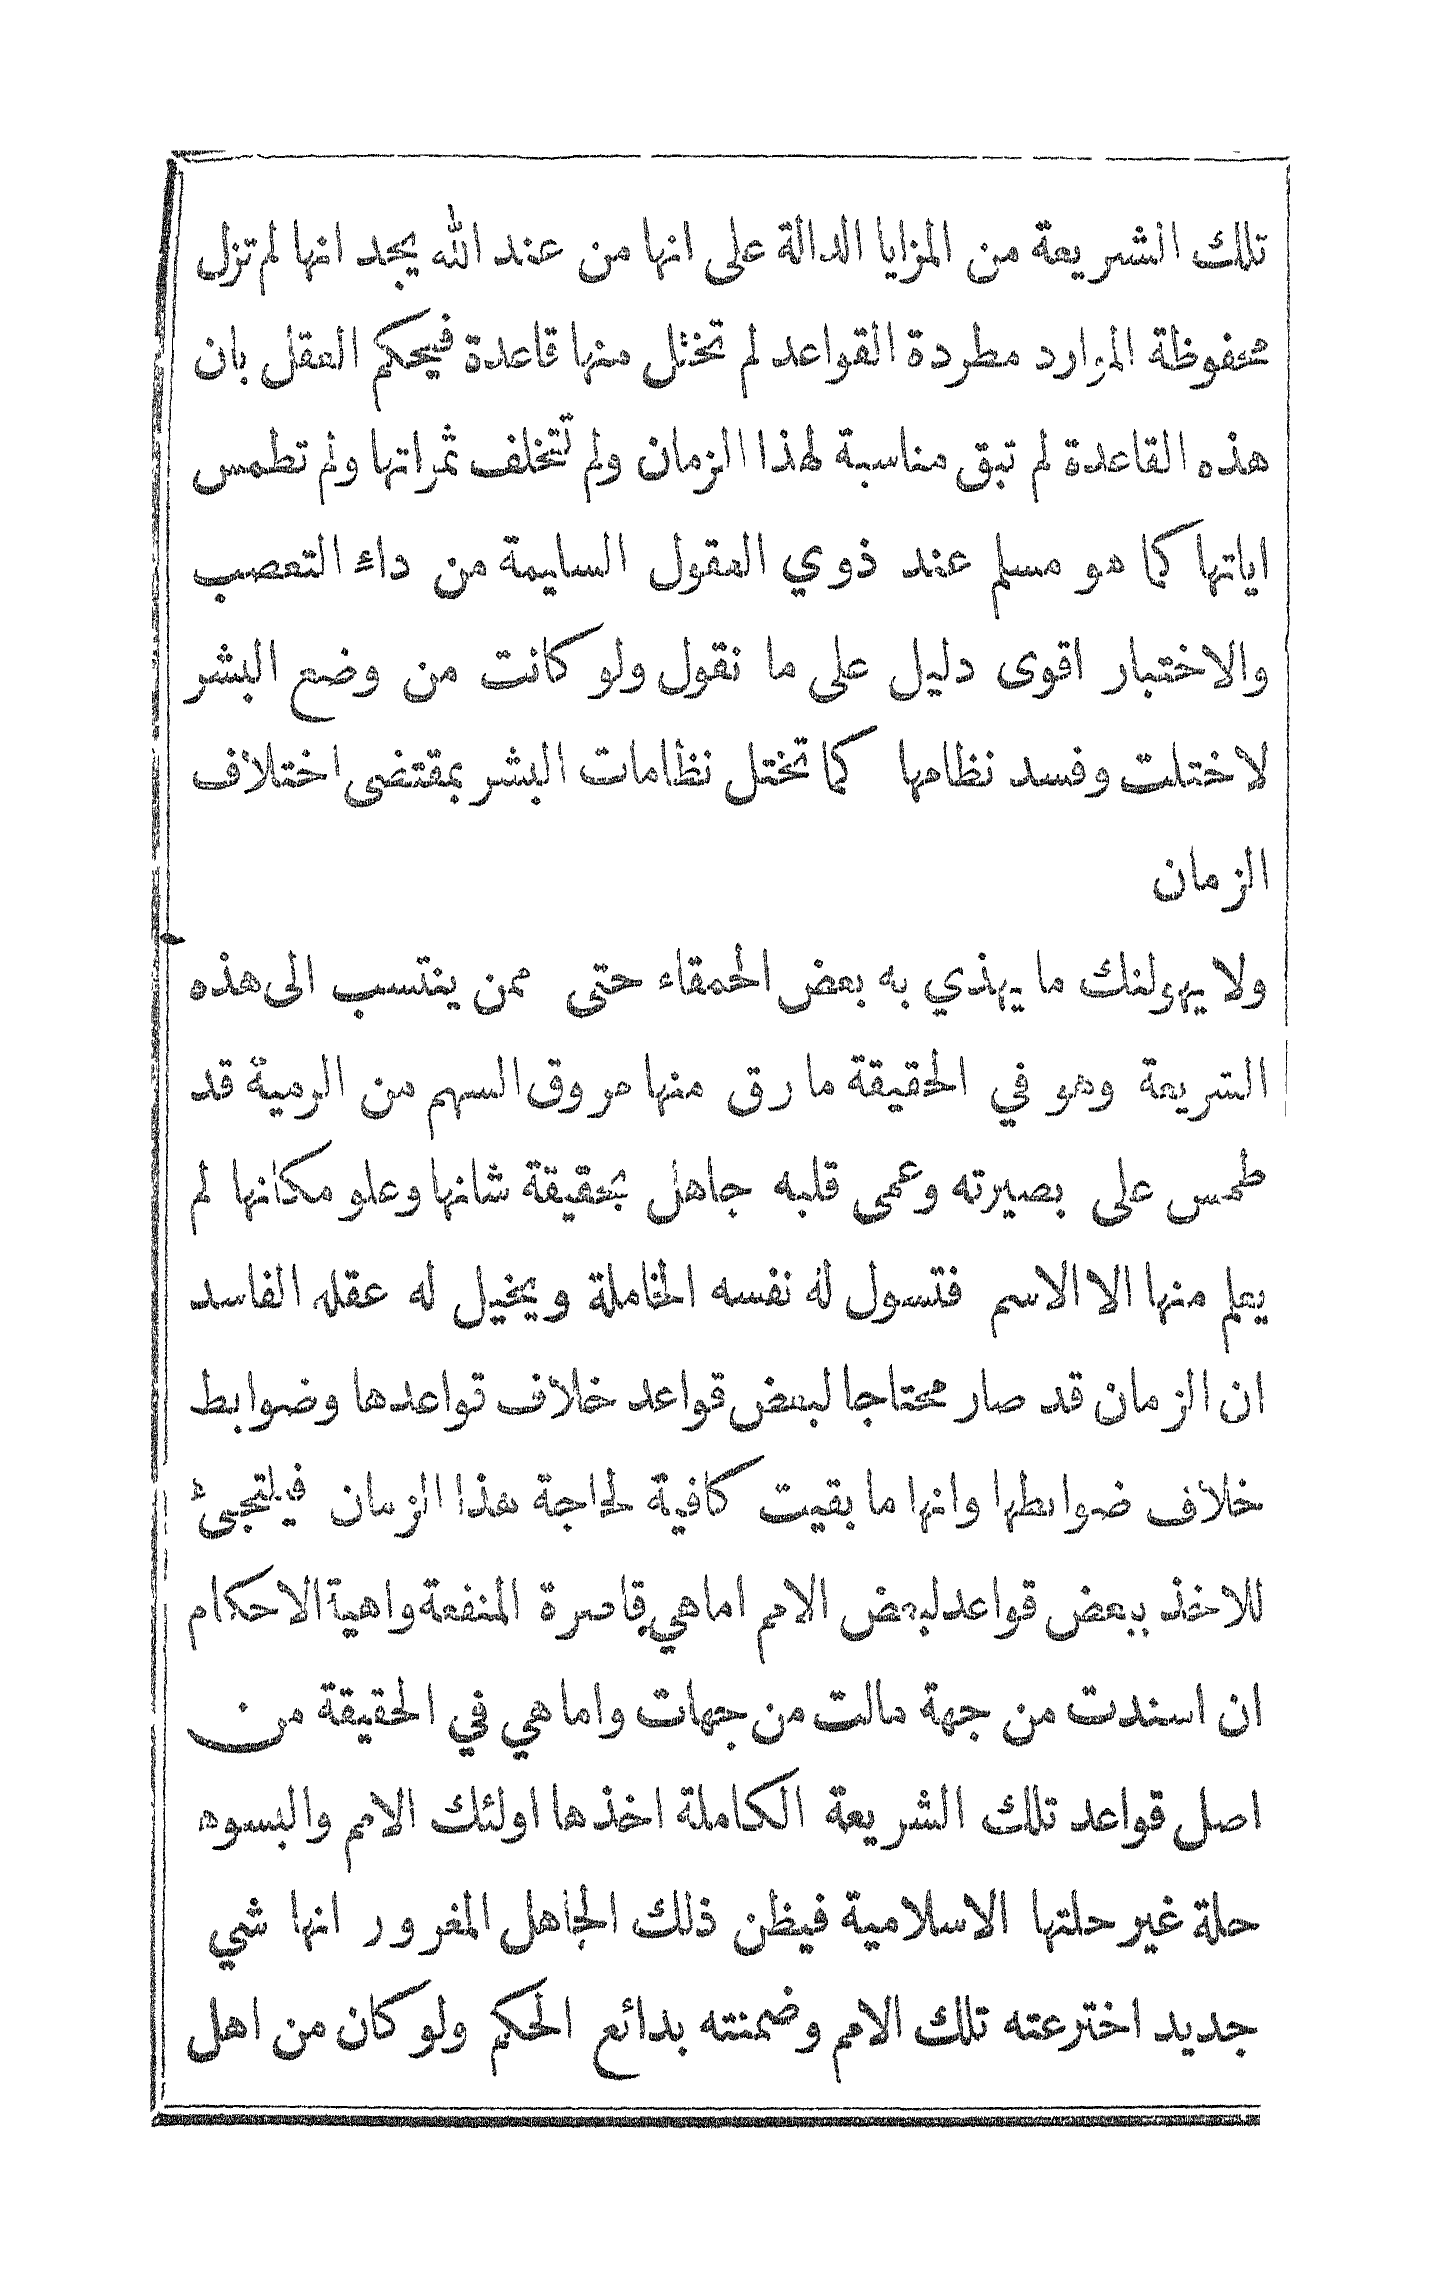 تلك الشريعة من المزايا الدالة على انها من عند الله يجد انها لم تزل
محفوظة الموارد مطردة القواعد لم تختل منها قاعدة فيحكم العقل بان
هذه القاعدة لم تبق مناسبة لهذا الزمان ولم تتخلف ثمراتها ولم تطمس
اياتها كما هو مسلم عند ذوي العقول السليمة من داء التعصب
والاختبار اقوى دليل على ما نقول ولو كانت من وضع البشر
لاختلت وفسد نظامها كما تختل نظامات البشر بمقتضى اختلاف
الزمان
ولا يهولنك ما يهذي به بعض الحمقاء حتى ممن ينتسب الى هذه
الشريعة وهو في الحقيقة مارق منها مروق السهم من الرمية قد
طمس على بصيرته وعمى قلبه جاهل بحقيقة شانها وعلو مكانها لم
يعلم منها الا الاسم فتسول له نفسه الخاملة ويخيل له عقله الفاسد
ان الزمان قد صار محتاجا لبعض قواعد خلاف قواعدها وضوابط
خلاف ضوابطها وانها ما بقيت كافية لحاجة هذا الزمان فيلتجئ
للاخذ ببعض قواعد لبعض الامم اما هي قاصرة المنفعة واهية الاحكام
ان اسندت من جهة مالت من جهات واما هي في الحقيقة من
اصل قواعد تلك الشريعة الكاملة اخذها اولئك الامم والبسوه
حلة غير حلتها الاسلامية فيظن ذلك الجاهل المغرور انها شي
جديد اخترعته تلك الامم وضمنته بدائع الحكم ولو كان من اهل